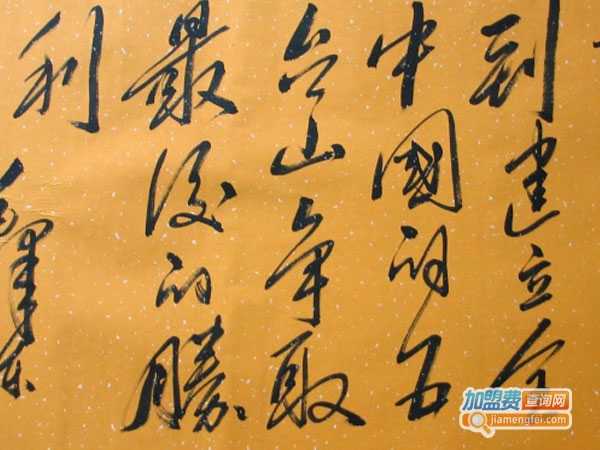 到建立全
中國的五
台山争取
最後的勝
利
毛澤东
加盟费查询网
jiamengfei.com